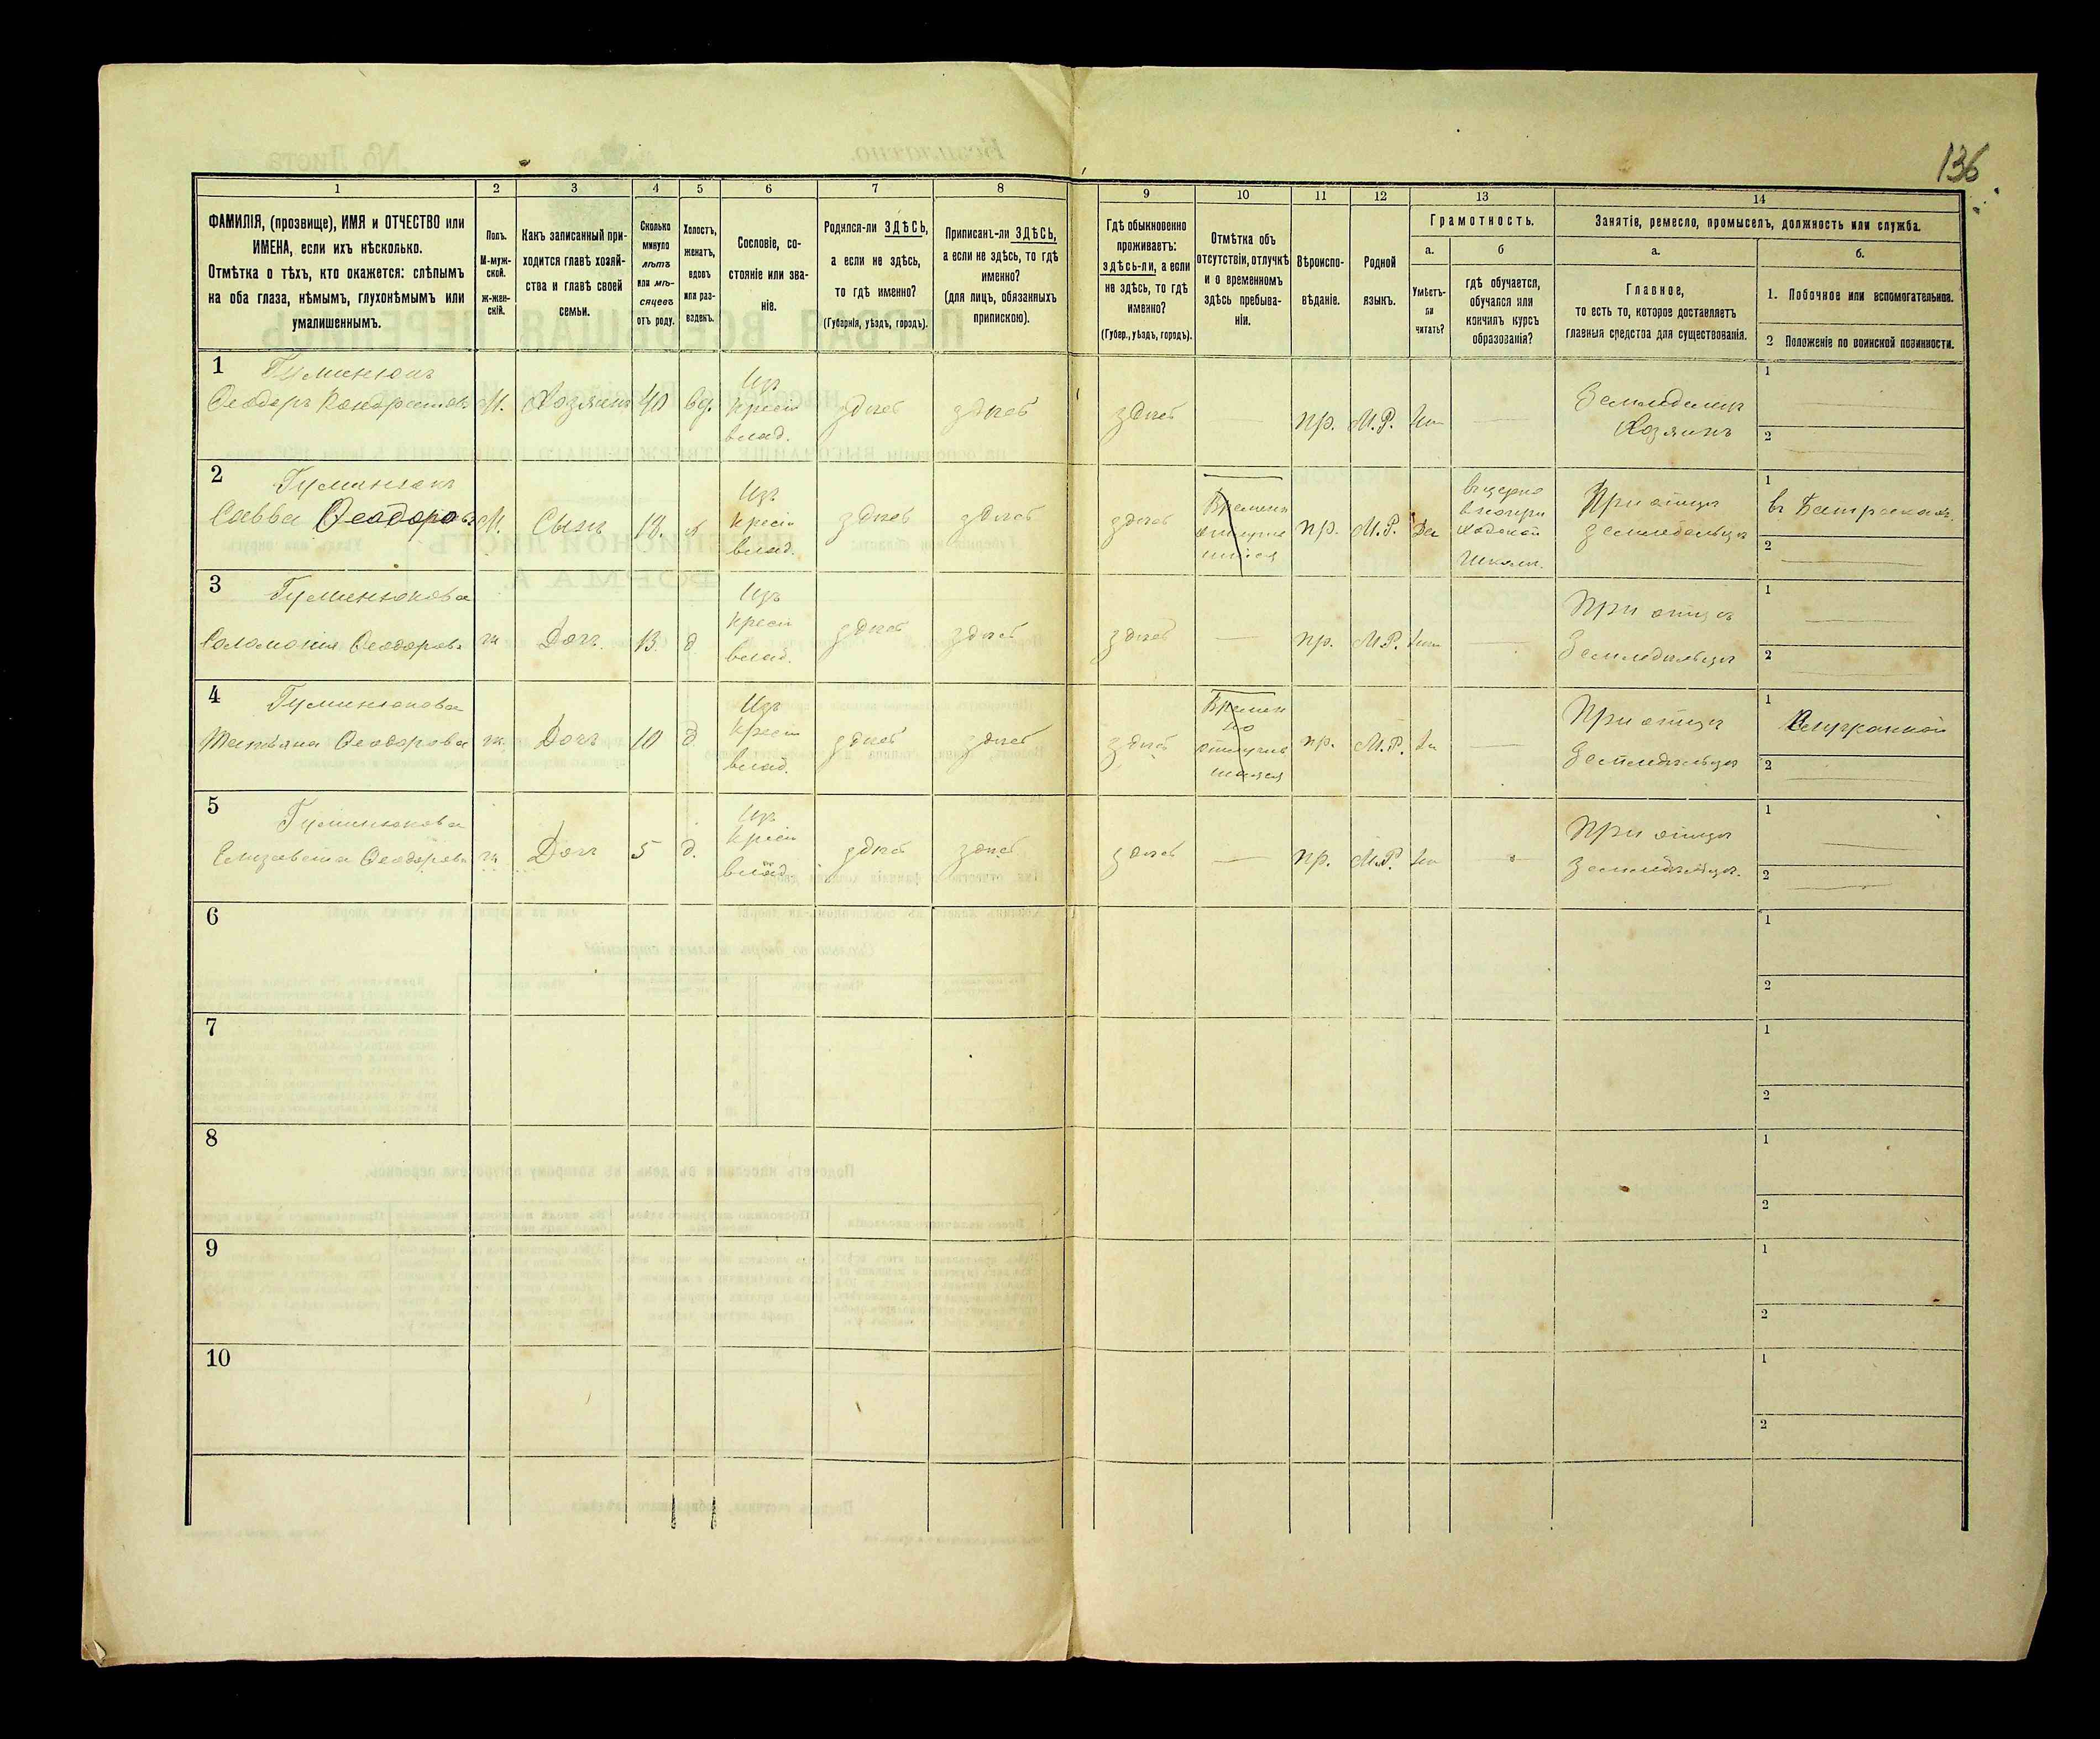 136
1
2
3
4
5
6
7
8
9
10
11
12
13
14
ФАМИЛІЯ, (прозвище), ИМЯ и ОТЧЕСТВО или
ИМЕНА, если ихъ нѣсколько.
Отмѣтка о тѣхъ, кто окажется: слѣпымъ
на оба глаза, нѣмымъ, глухонѣмымъ или
умалишеннымъ.
Полъ.
М-муж-
ской.
ж-жен-
скій.
Какъ записанный при-
ходится главѣ хозяй-
ства и главѣ своей
семьи.
Сколько
минуло
лѣтъ
или мѣ-
сяцевъ
отъ роду.
Холостъ,
женатъ,
вдовъ
или раз-
веденъ.
Сословіе, со-
стояніе или зва-
ніе.
Родился-ли ЗДѢСЬ,
а если не здѣсь,
то гдѣ именно?
(Губернія, уѣздъ, городъ).
Приписанъ-ли ЗДѢСЬ,
а если не здѣсь, то гдѣ
именно?
(для лицъ, обязанныхъ
припискою).
Гдѣ обыкновенно
проживаетъ:
здѣсь-ли, а если
не здѣсь, то гдѣ
именно?
(Губер., уѣздъ, городъ).
Отмѣтка объ
отсутствіи, отлучкѣ
и о временномъ
здѣсь пребыва-
ніи.
Вѣроиспо-
вѣданіе.
Родной
языкъ.
Грамотность.
а.
Умѣетъ-
ли
читать?
б
гдѣ обучается,
обучался или
кончилъ курсъ
образованія?
Занятіе, ремесло, промыселъ, должность или служба.
а.
Главное,
то есть то, которое доставляетъ
главныя средства для существованія.
б.
1. Побочное или вспомогательное.
2 Положеніе по воинской повинности.
1
Гуменюкъ
Ѳеодоръ Кондратовъ
М.
Хозяинъ
40
вд.
Изъ
кресть
влад.
здѣсь
здѣсь
здѣсь
—
пр.
М.Р.
—
Земледѣлецъ
Хозяинъ
1
2
2
Гуменюкъ
Савва Ѳеодоровъ
М.
Сынъ
18.
Изъ
кресть
влад.
здѣсь
здѣсь
здѣсь
Времен
пр.
М.Р.
Да
школы.
При отцѣ
земледѣльцѣ
1
въ Батракахъ
2
3
Гуменюкова
Соломонія Ѳеодорова
ж
Дочь.
13.
д
Изъ
кресть
влад.
здѣсь
здѣсь
здѣсь
—
пр.
М.Р.
—
При отцѣ
Земледѣльцѣ
1
2
4
Гуменюкова
Татьяна Ѳеодорова
ж.
Дочь
10
д
Изъ
кресть
влад.
здѣсь
здѣсь
здѣсь
Времен
но
отлучив
шаяся
пр.
М.Р.
—
При отцѣ
Земледѣльцѣ
1
Служанкой
2
5
Гуменюкова
Елизавета Ѳеодорова
ж
Дочь
5
д.
Изъ
кресть
влад.
здѣсь
здѣсь
здѣсь
—
пр.
М.Р.
—
При отцѣ
Земледѣльцѣ.
1
2
6
1
2
7
1
2
8
1
2
9
1
2
10
1
2